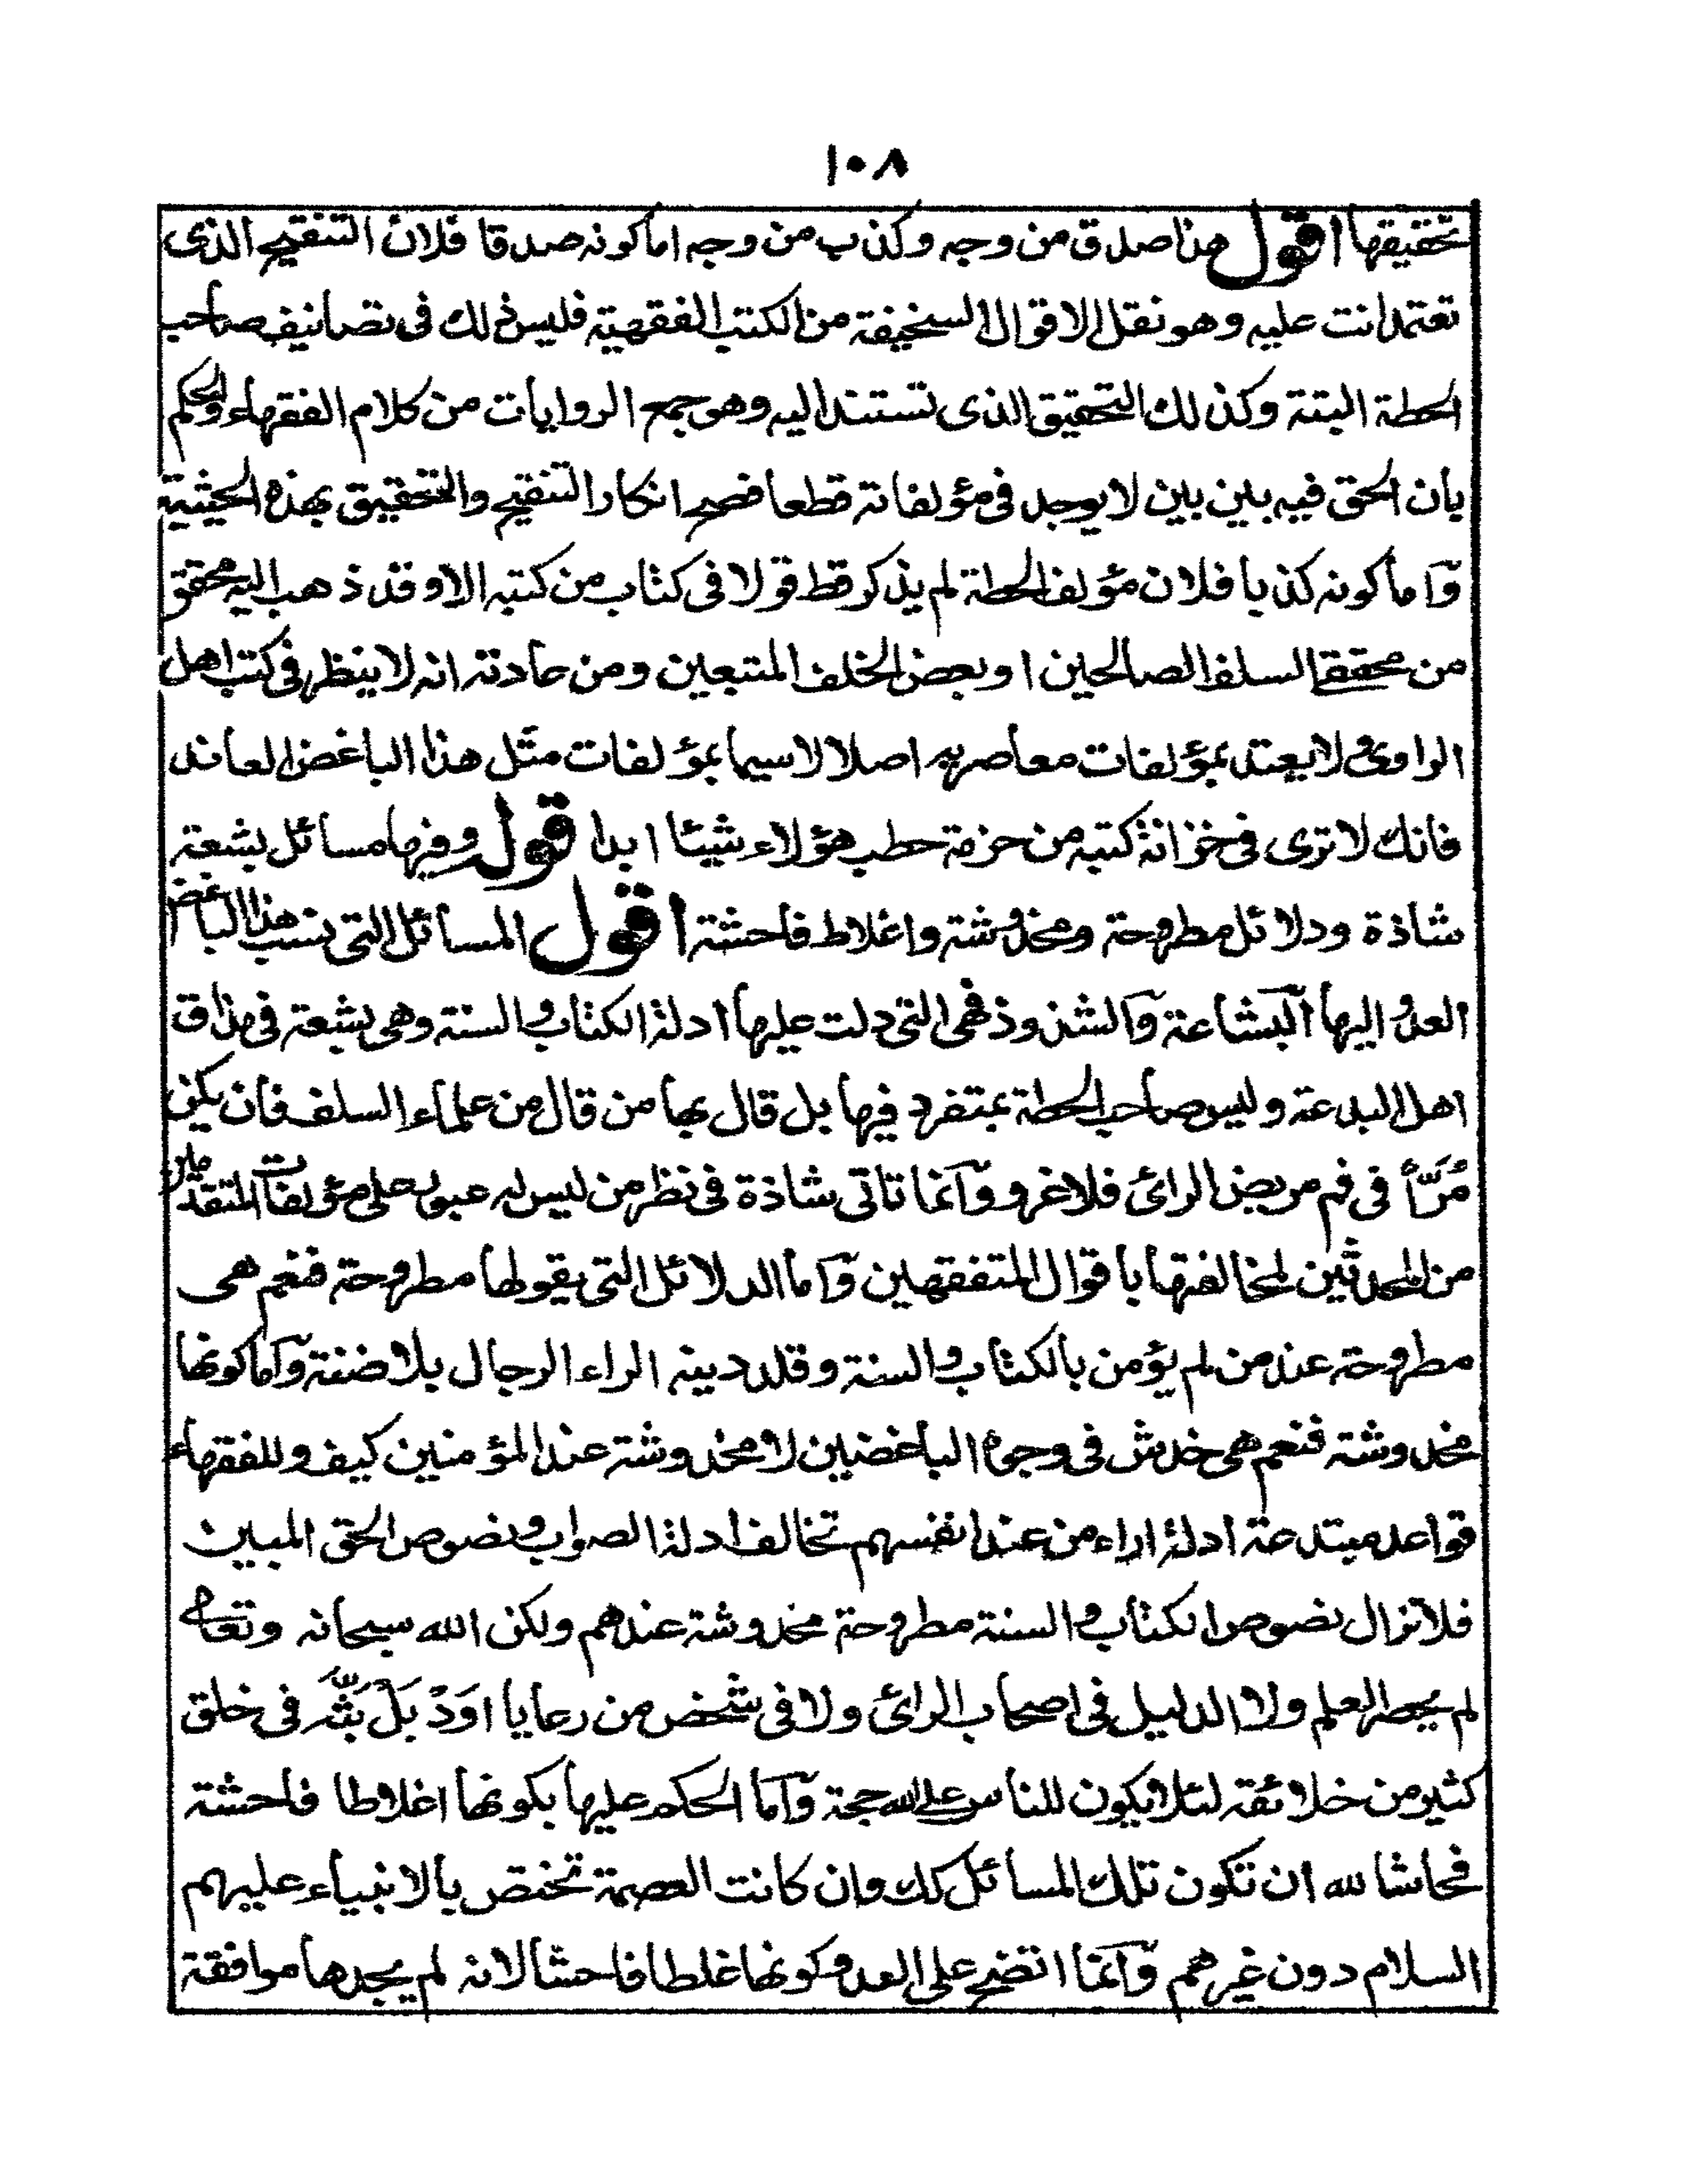 ١٠٨
تحقيقها اقول هذا صدق من وجه وكذب من وجه اما كونه صدقا فلان التنقيح الذى
تعتمد انت عليه وهو نقل الاقوال السخيفة من الكتب الفقهية فليس ذلك فى تصانيف صاحب
الحطة البتة وكذلك التحقيق الذى تستند اليه وهو جمع الروايات من كلام الفقهاء والحكم
بان الحق فيه بين بين لا يوجد فى مؤلفاته قطعا فصح انكار التنقيح والتحقيق بهذه الحيثية
وَاما كونه كذبا فلان مؤلف الحطة لم يذكر قط قولا فى كتاب من كتبه الا وقد ذهب اليه محقق
من محققے السلف الصالحين او بعض الخلف المتبعين ومن عادته انه لا ينظر فى كتب اهل
الراى ولا يعتد بمؤلفات معاصريه اصلا لا سيما بمؤلفات مثل هذا الباغض المعاند
فانك لا ترى فى خزانة كتبه من حزمة حطب هؤلاء شيئا ابدا قول وفيها مسائل بشعة
شاذة ودلائل مطروحة ومخدوشة واغلاط فاحشة اقول المسائل التى نسب هذا الباغض
العدو اليها البشاعة والشذوذ فهى التى دلت عليها ادلة الكتاب والسنة وهى بشعة فى مذاق
اهل البدعة وليس صاحب الحطة بمتفرد فيها بل قال بها من قال من علماء السلف فان يكن
مُرّاً فى فم مريض الرائ فلا غرو وَانما تاتى شاذة فى نظر من ليس له عبور على مؤلفات المتقدمين
من المحدثين لمخالفتها باقوال المتفقهين وَاما الدلائل التى يقولها مطروحة فنعم هى
مطروحة عند من لم يؤمن بالكتاب والسنة وقلد دينه الراء الرجال بلا ضنة وَاما كونها
مخدوشة فنعم هى خدش فى وجوه الباغضين لا مخدوشة عند المؤمنين كيف وللفقهاء
قواعد مبتدعة ادلة اراء من عند انفسهم تخالف ادلة الصواب ونصوص الحق المبين
فلا تزال نصوص الكتاب والسنة مطروحة مخدوشة عندهم ولكن الله سبحانه وتعالے
لم يحصر العلم ولا الدليل فى اصحاب الرائ ولا فى شخص من رعايا اَوَدْ بَلْ بَثَّہ فى خلق
كثير من خلائقه لئلا يكون للناس على الله حجة وَاما الحكم عليها بكونها اغلاطا فاحشة
فحاشا لله ان تكون تلك المسائل كك وان كانت العصمة تختص بالانبياء عليهم
السلام دون غيرهم وَانما اتضح على العدو كونها غلطا فاحشا لانه لم يجدها موافقة